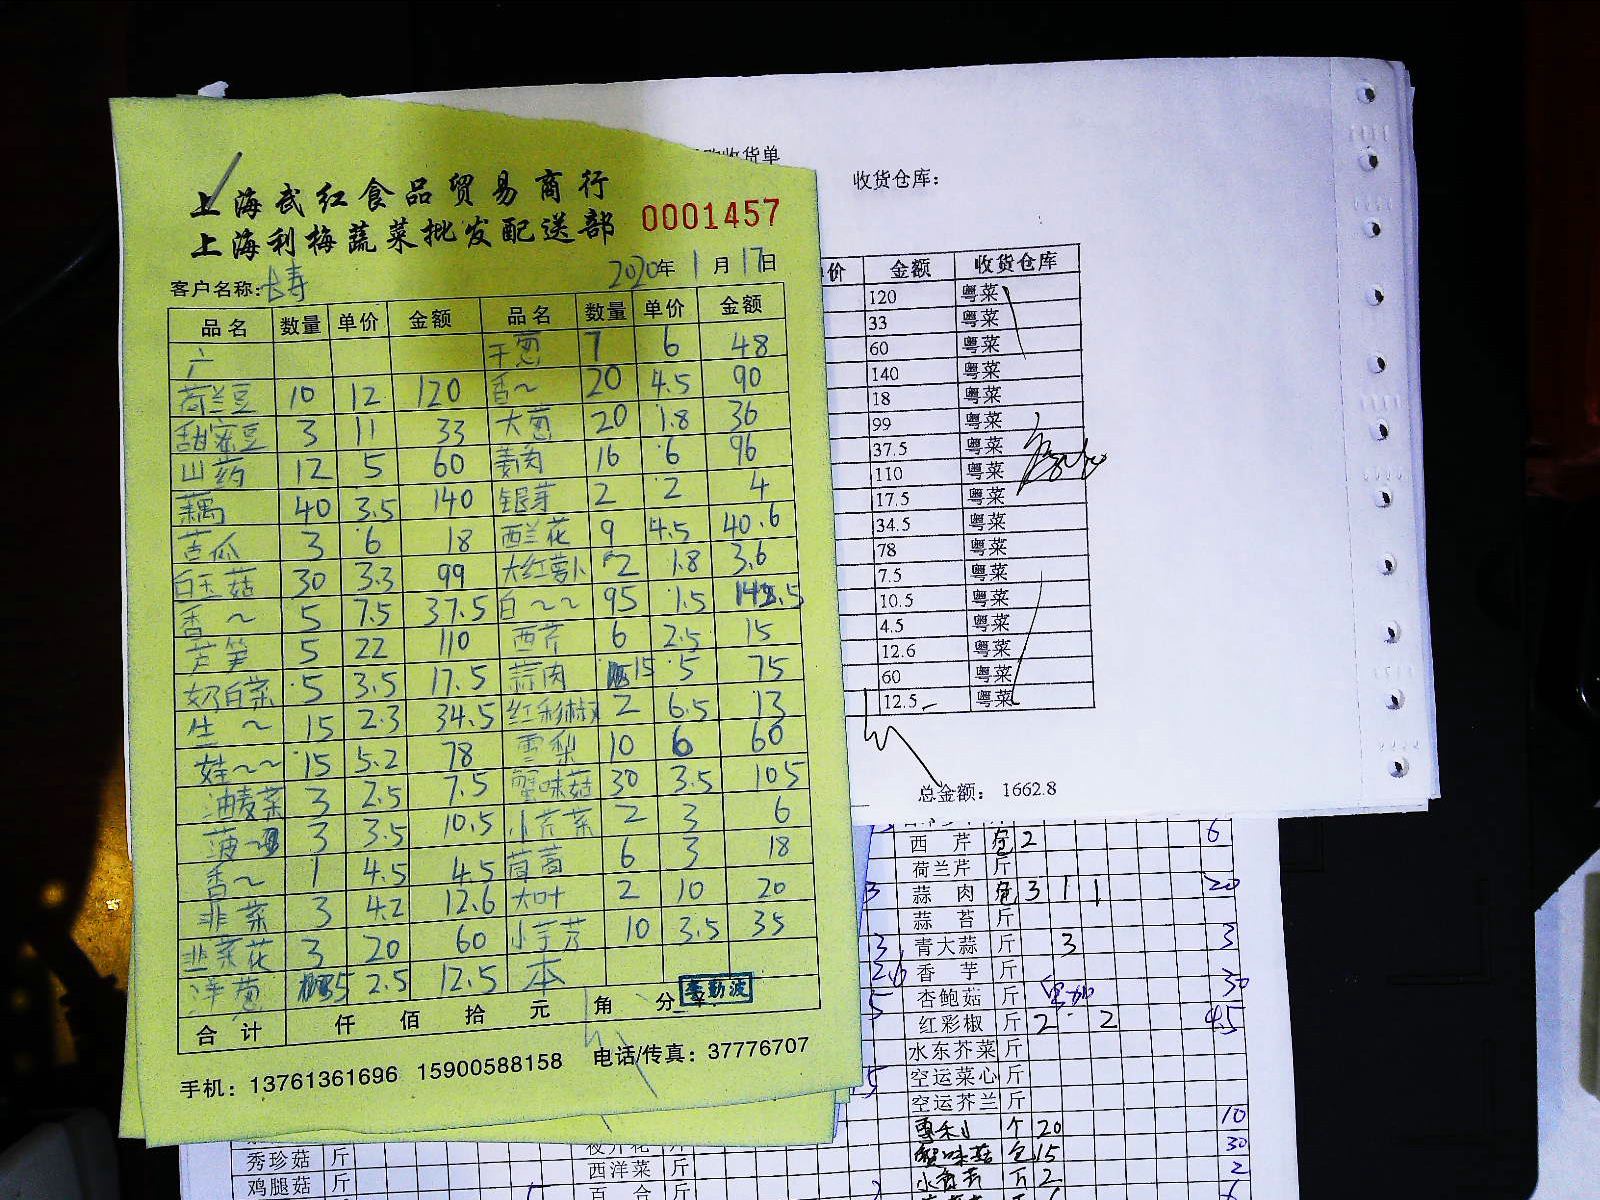 上海武红食品贸易商行
上海利梅蔬菜批发配送部 0001457
客户名称:长寿 2020年1月17日
品名 数量 单价 金额 品名 数量 单价 金额
广 干葱 7 6 48
荷兰豆 10 12 120 香~ 20 4.5 90
甜蜜豆 3 11 33 大葱 20 1.8 36
山药 12 5 60 姜肉 16 6 96
藕 40 3.5 140 银芽 2 2 4
苦瓜 3 6 18 西兰花 9 4.5 40.6
白玉菇 30 3.3 99 大红萝卜 2 1.8 3.6
香~ 5 7.5 37.5 白~~ 95 1.5 142.5
芦笋 5 22 110 西芹 6 2.5 15
奶白菜 5 3.5 17.5 蒜肉 15 5 75
生~ 15 2.3 34.5 红彩椒 2 6.5 13
娃~~ 15 5.2 78 雪梨 10 6 60
油麦菜 3 2.5 7.5 蟹味菇 30 3.5 105
菠~ 3 3.5 10.5 小芹菜 2 3 6
香~ 1 4.5 4.5 茼蒿 6 3 18
韭菜 3 4.2 12.6 大叶 2 10 20
韭菜花 3 20 60 小芋艿 10 3.5 35
洋葱 5 2.5 12.5 本
合计 仟 佰 拾 元 角 分
李勤波
手机：13761361696 15900588158 电话/传真：37776707
收货单
收货仓库：
价 金额 收货仓库
120 粤菜
33 粤菜
60 粤菜
140 粤菜
18 粤菜
99 粤菜
37.5 粤菜
110 粤菜
17.5 粤菜
34.5 粤菜
78 粤菜
7.5 粤菜
10.5 粤菜
4.5 粤菜
12.6 粤菜
60 粤菜
12.5 粤菜
总金额： 1662.8
西芹 包 2 6
荷兰芹 斤
3 蒜肉 包 3 1 1 20
蒜苔 斤
3 青大蒜 斤 3 3
香芋 斤
5 杏鲍菇 斤 30
红彩椒 斤 2 2 45
水东芥菜 斤
5 空运菜心 斤
空运芥兰 斤 10
个 20
蟹味菇 包 15 30
2 2
秀珍菇 斤
西洋菜 斤
鸡腿菇 斤
百合 斤